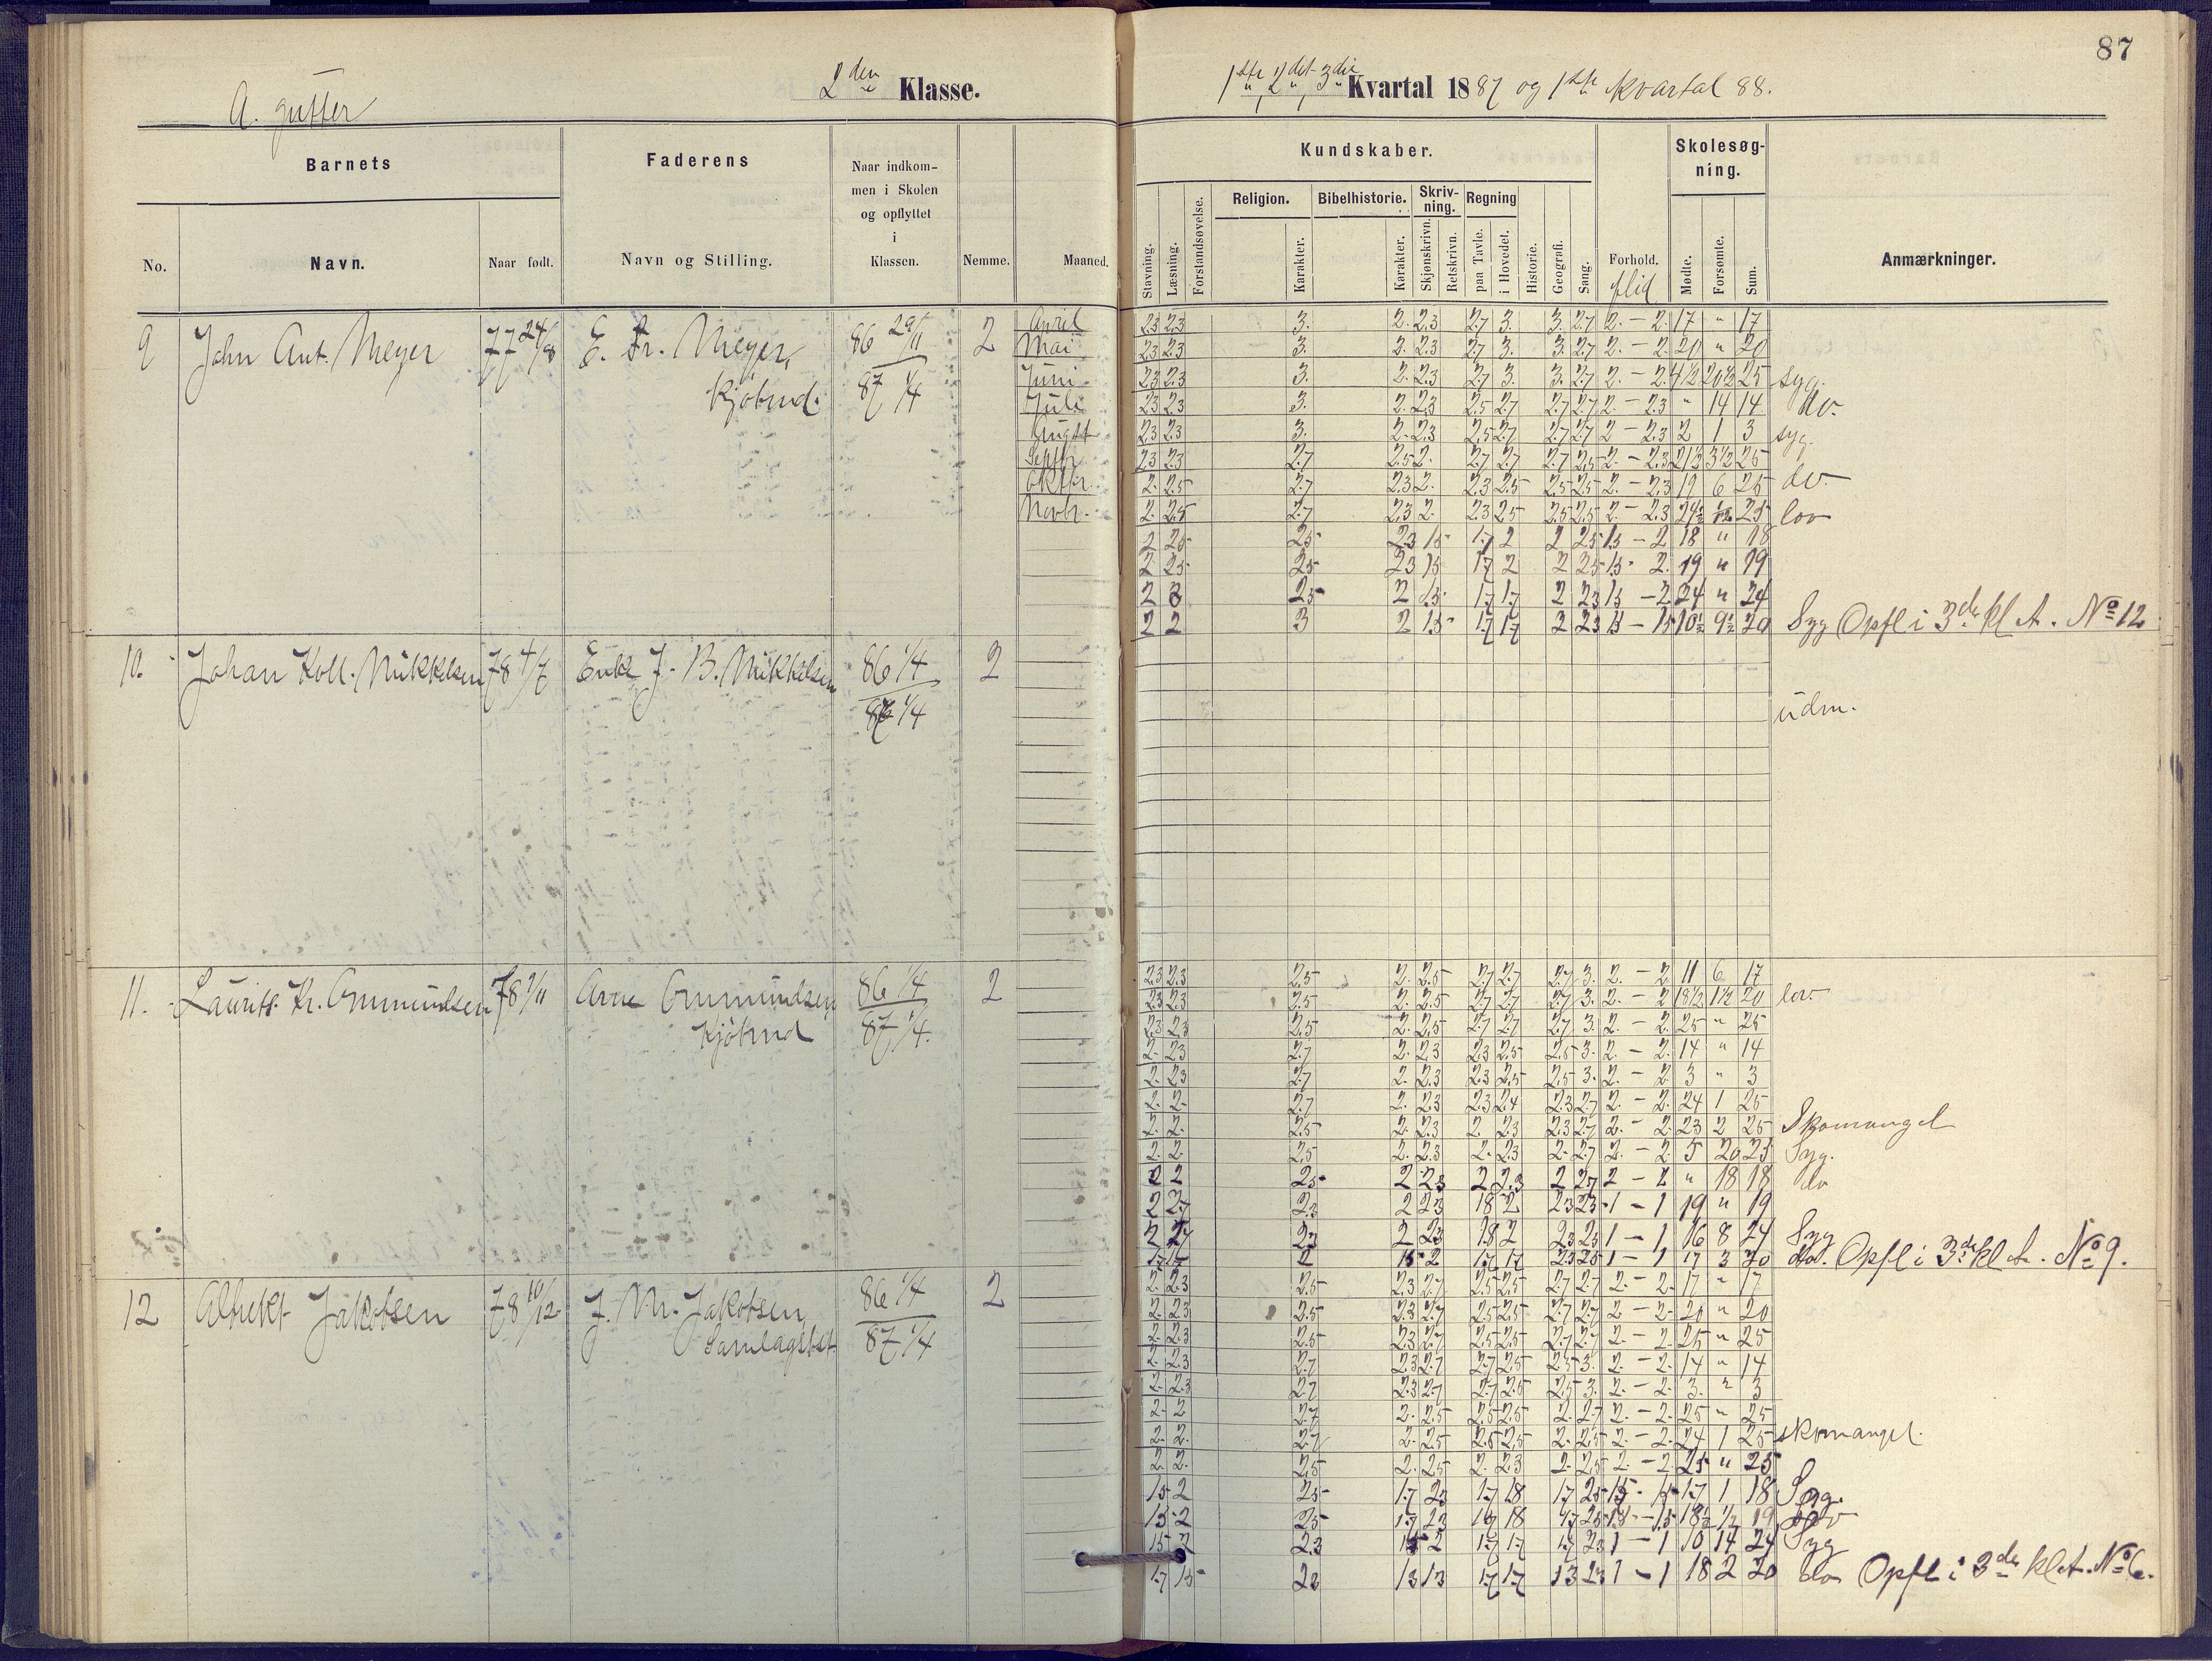 87
A. gutter
2den Klasse.
1ste, 2det, 3die Kvartal 1887 og 1ste Kvartal 88.
Barnets
Faderens
Naar indkom-
men i Skolen
og opflyttet
i
Klassen.
Kundskaber.
Skolesøg-
ning.
No.
Navn.
Naar født.
Navn og Stilling.
Nemme.
Maaned.
Stavning.
Læsning.
Forstandsøvelse.
Religion.
Karakter.
Bibelhistorie.
Karakter.
Skriv-
ning.
Skjønskrivn.
Retskrivn.
Regning
paa Tavle.
i Hovedet.
Historie.
Geografi.
Sang.
Forhold.
flid
Mødte.
Forsømte.
Sum.
Anmærkninger.
9 John Ant. Meyer 77 24/8 E. Fr. Meyer, 86 29/11 2 April 2.3 2.3 3. 2. 2.3 2.7 3. 3. 2.7 2. - 2. 17 " 17
Kjøbmd. 87 1/4
Mai 2.3 2.3 3. 2. 2.3 2.7 3. 3. 2.7 2. - 2. 20 " 20
Juni 2.3 2.3 3. 2. 2.3 2.7 3. 3. 2.7 2. - 2. 4 1/2 20 1/2 25 syg.
Juli 2.3 2.3 3. 2. 2.3 2.5 2.7 2.7 2.7 2. - 2.3 " 14 14 do.
August 2.3 2.3 3. 2. 2.3 2.5 2.7 2.7 2.7 2 - 2.3 2 1 3 syg.
Septbr. 2.3 2.3 2.7 2.5 2. 2.7 2.7 2.7 2.5 2. - 2.3 21 1/2 3 1/2 25
Oktbr. 2. 2.5 2.7 2.3 2. 2.3 2.5 2.5 2.5 2. - 2.3 19 6 25 do.
Novbr. 2. 2.5 2.7 2.3 2. 2.3 2.5 2.5 2.5 2. - 2.3 24 1/2 1/2 25 lov
2 2.5 2.5 2.3 1.5 1.7 2 2 2.5 1.5 - 2 18 " 18
2 2.5 2.5 2.3 1.5 1.7 2 2 2.5 1.5 - 2. 19 " 19
2 2 2.5 2 1.5 1.7 1.7 2 2.3 1.5 - 2 24 " 24
2 2 3 2 1.5 1.7 1.7 2 2.3 1.5 - 1.5 10 1/2 9 1/2 20 Syg Opfl i 3de kl A. No 12
10. Johan Koll. Mikkelsen 78 4/7 Enke J. B. Mikkelsen 86 1/4 2
87 1/4
udm.
11. Laurits Kr. Ommundsen 78 9/11 Arne Ommundsen 86 1/4 2 2.3 2.3 2.5 2. 2.5 2.7 2.7 2.7 3. 2. - 2 11 6 17
Kjøbmd 87 1/4.
2.3 2.3 2.5 2. 2.5 2.7 2.7 2.7 3. 2. - 2 18 1/2 1 1/2 20 lov.
2.3 2.3 2.5 2. 2.5 2.7 2.7 2.7 3. 2. - 2. 25 " 25
2. 2.3 2.7 2. 2.3 2.3 2.5 2.5 3. 2. - 2. 14 " 14
2. 2.3 2.7 2. 2.3 2.3 2.5 2.5 3. 2. - 2. 3 " 3
2. 2. 2.7 2. 2.3 2.3 2.4 2.3 2.7 2. - 2. 24 1 25
2. 2. 2.5 2. 2.3 2. 2.3 2.3 2.7 2. - 2. 23 2 25 Skomangel
2. 2. 2.5 2. 2.3 2. 2.3 2. 2.7 2. - 2. 5 20 25 Syg.
2 2 2.5 2 2.3 2 2.3 2 2.7 2 - 2 " 18 18 do
2 2.7 2.3 2 2.3 1.8 2 2.3 2.3 1 - 1 19 " 19
2 2.7 2.3 2 2.3 1.8 2 2.3 2.3 1 - 1 16 8 24 Syg
1.7 1.7 2 1.5 2 1.7 1.7 2.3 2.5 1 - 1 17 3 20 do. Opfl i 3de kl A. No 9.
12 Albrekt Jakobsen 78 10/12 J. M. Jakobsen 86 1/4 2 2. 2.3 2.5 2.3 2.7 2.5 2.5 2.7 2.7 2. - 2. 17 " 17
Samlagsbst. 87 1/4
2. 2.3 2.5 2.3 2.7 2.5 2.5 2.7 2.7 2 - 2. 20 " 20
2. 2.3 2.5 2.3 2.7 2.5 2.5 2.7 2.7 2. - 2. 25 " 25
2. 2.3 2.7 2.3 2.7 2.7 2.5 2.5 3. 2. - 2. 14 " 14
2. 2.3 2.7 2.3 2.7 2.7 2.5 2.5 3. 2. - 2. 3. " 3
2. 2 2.7 2. 2.5 2.5 2.5 2. 2.7 2. - 2. 25 " 25
2. 2. 2.7 2. 2.5 2.5 2.5 2. 2.5 2. - 2. 24 1 25 skomangel.
2. 2. 2.5 2. 2.5 2. 2.3 2. 2.5 2. - 2. 25 " 25
1.5 2 2.5 1.7 2.3 1.7 1.8 1.7 2.5 1.5 - 1.5 17 1 18 Syg.
1.5 2 2.5 1.7 2.3 1.7 1.8 1.7 2.5 1.5 - 1.5 18 1/2 1/2 19 lov
1.5 2 2.3 1.5 2 1.7 1.7 1.7 2.3 1 - 1 10 14 24 Syg
1.7 1.5 2.3 1.3 1.3 1.7 1.7 1.3 2.3 1 - 1 18 2 20 do Opfl i 3de kl A. No 6.